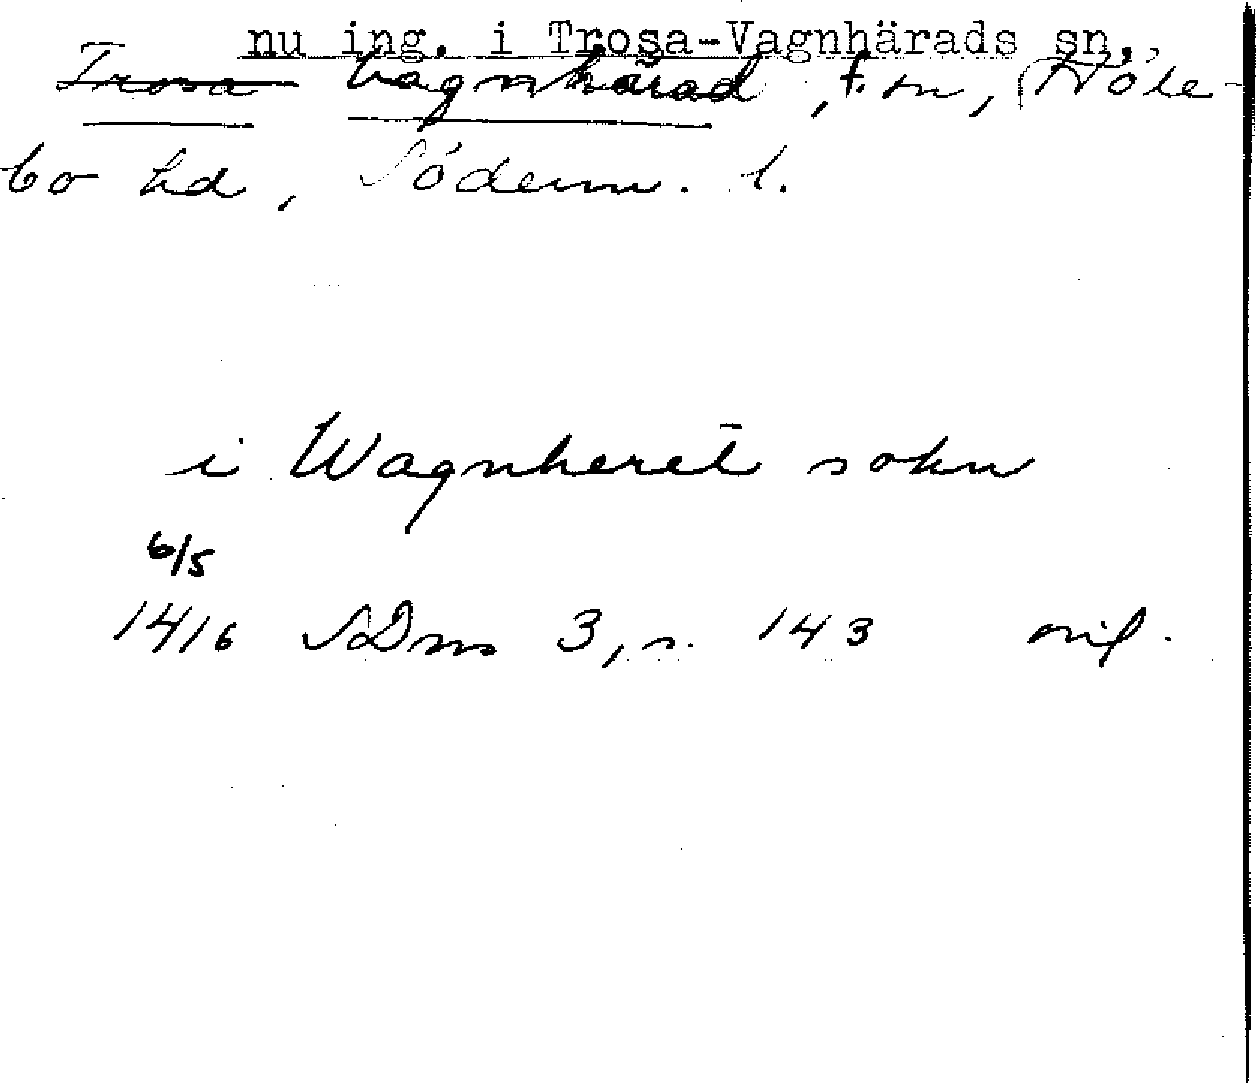 nu ing. i Trosa-Vagnhärads sn.,
Trosa Vagnhärad, f. sn, Höle-
bo hd, Söderm. l.
i Wagnheret̄ sokn
6/5
1416 SDns 3, s. 143 orig.